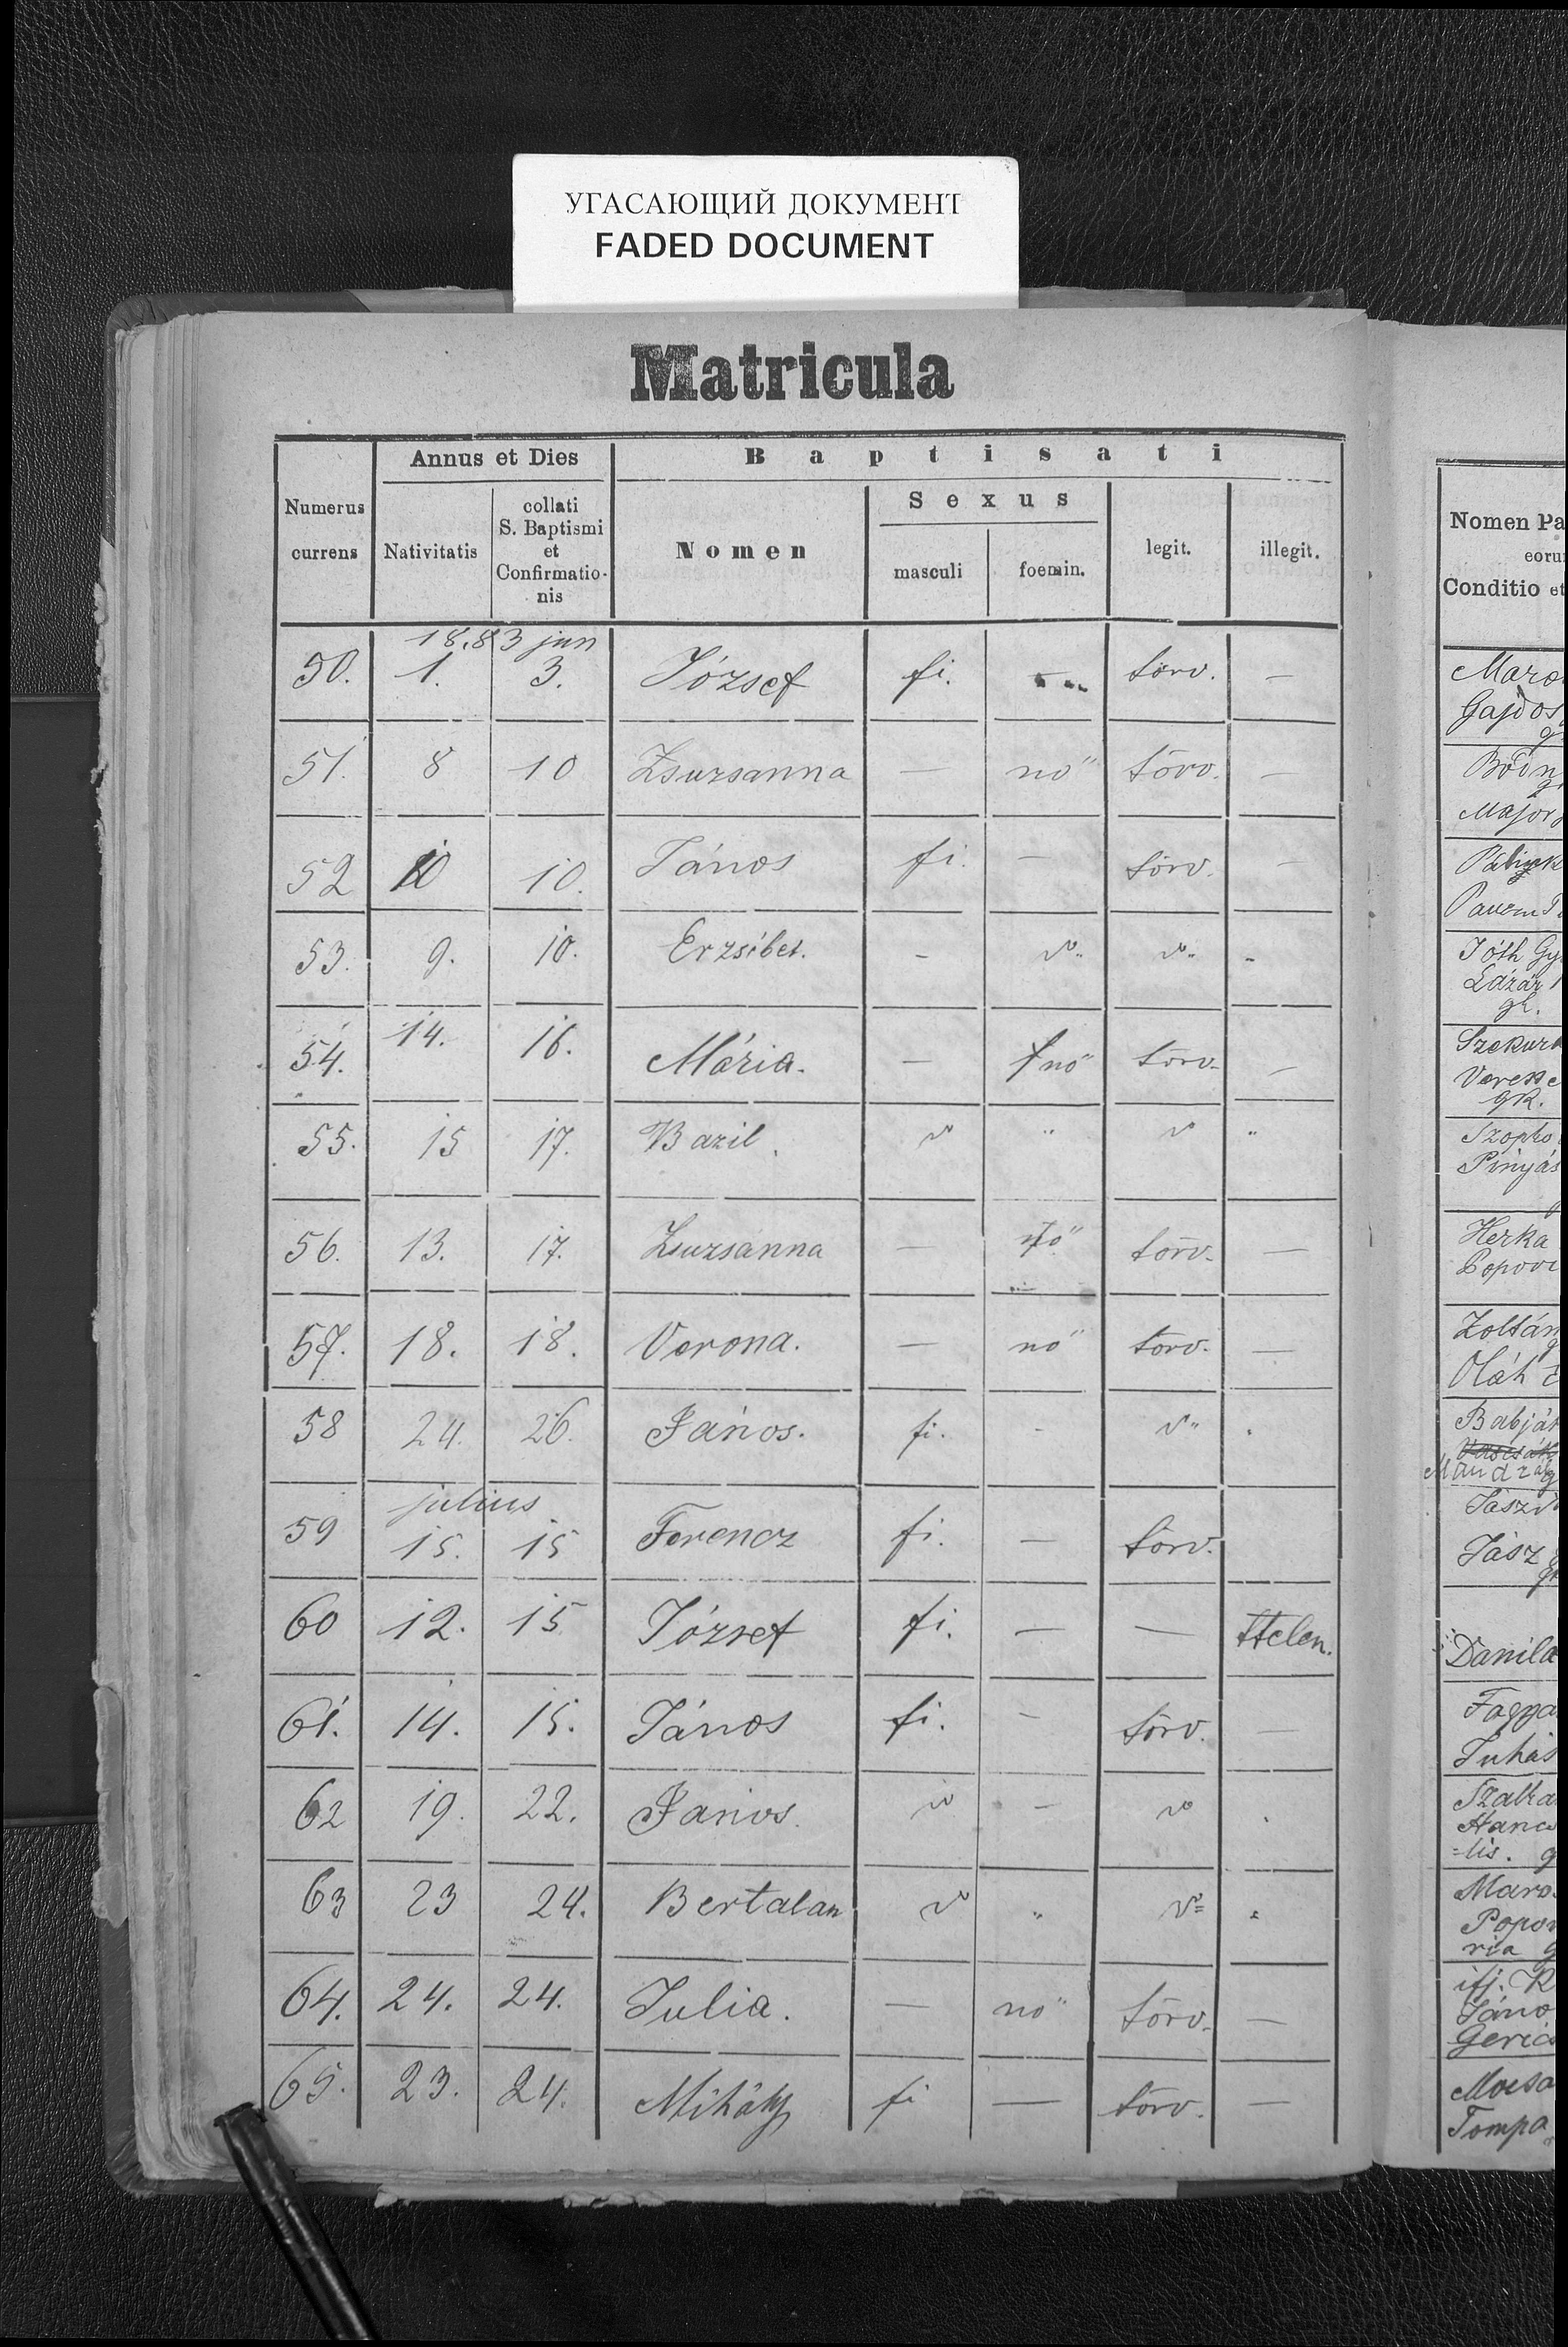 УГАСАЮЩИЙ ДОКУМЕНТ
FADED DOCUMENT
Matricula
Numerus currens
Annus et Dies
Nativitatis
collati S. Baptismi et Confirmatio-nis
Baptisati
Nomen
Sexus
masculi
foemin.
legit.
illegit.
1883 jun
50. 1. 3. József fi. — törv. —
51. 8 10 Zsuzsanna — nő törv. —
52 10 10. János fi. — törv. —
53. 9. 10. Erzsébet. - v. v. -
54. 14. 16. Mária. — nő törv. —
55. 15 17. Bazil. v " v "
56. 13. 17. Zsuzsanna — nő törv. —
57. 18. 18. Verona. — nő törv. —
58 24. 26. János. fi. - v" .
julius
59 15. 15 Ferencz fi. — törv.
60 12. 15 József fi. — — ttelen.
61. 14. 15. János fi. - törv. —
62 19. 22. János. v — v .
63 23 24. Bertalan v " v= "
64. 24. 24. Julia. — nő törv. —
65. 23. 24. Mihály fi — törv. —
Nomen Pa
eoru
Conditio et
Maro
Gajdos
Bodn
Major
Tóth Gy
Lázár
gk.
Szekur
Veress
gk.
Szopko
Pinyás
Herka
Popovi
Zoltán
Oláh
Babják
Mandzák
Jászi
Jász
Danila
Fogga
Juhás
Szatka
Hancs
=lis. g
Maro
Popov
ria g
ifj. K
Jáno
Geric
Mocsa
Tompa